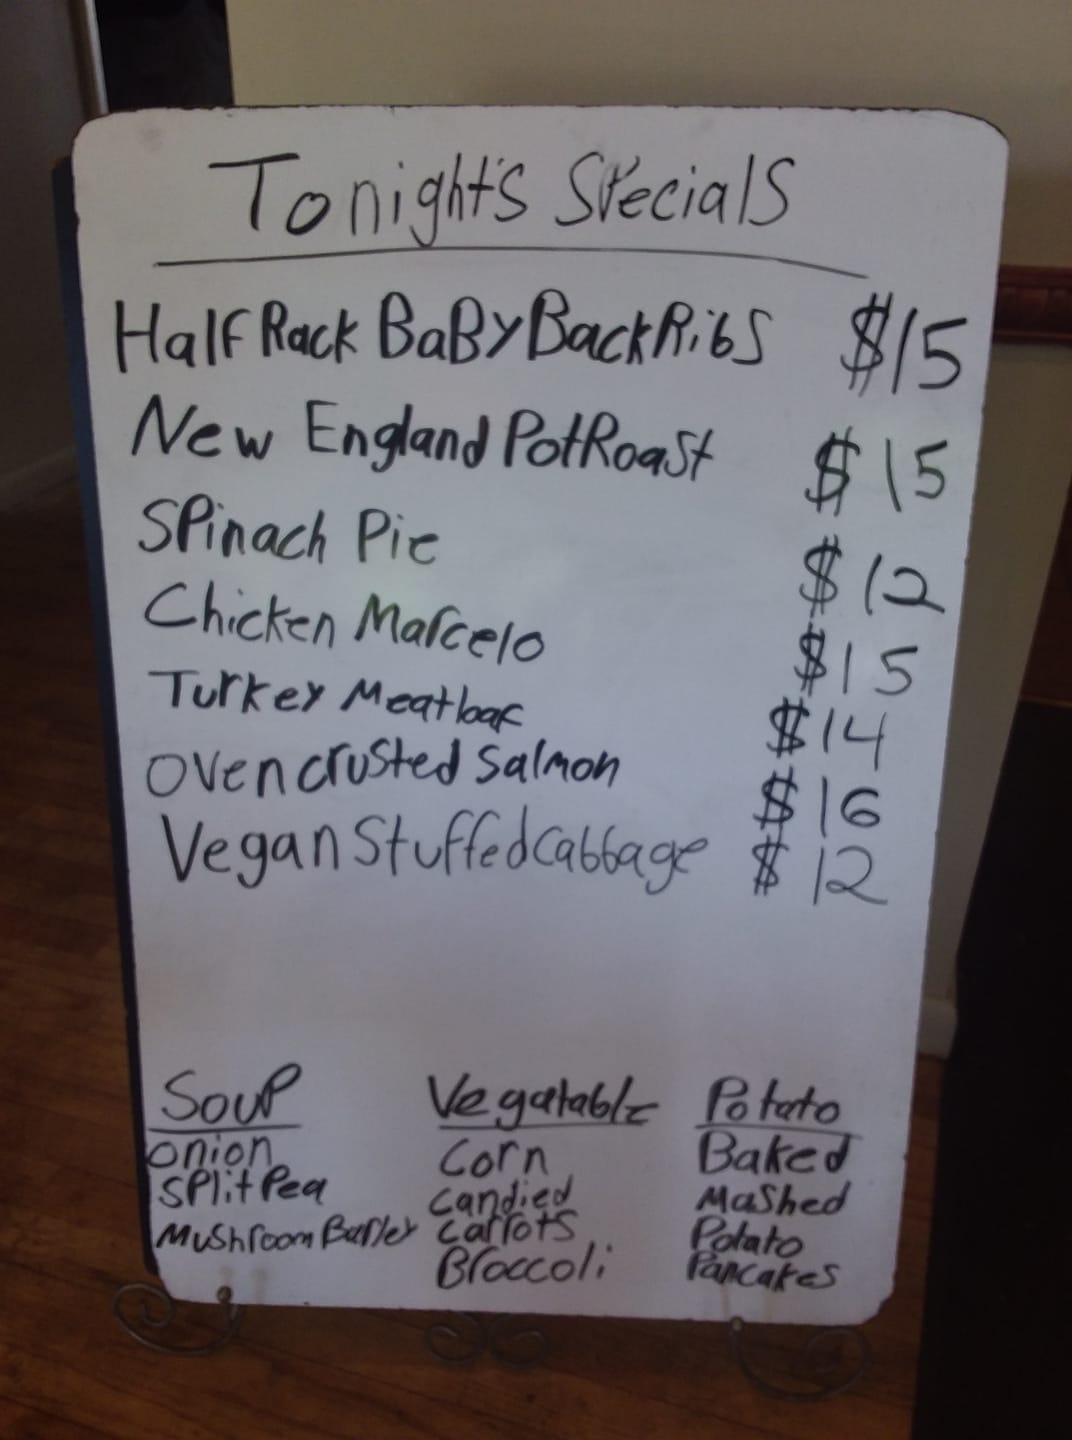 Tonight's Specials
Half Rack Baby Back Ribs $15
New England Pot Roast $15
Spinach Pie $12
Chicken Marcelo $15
Turkey Meatloaf $14
Oven crusted Salmon $16
Vegan Stuffed Cabbage $12
Soup
Onion
Split Pea
Mushroom Barley
Vegatable
Corn
Candied
Carrots
Broccoli
Potato
Baked
Mashed
Potato
Pancakes